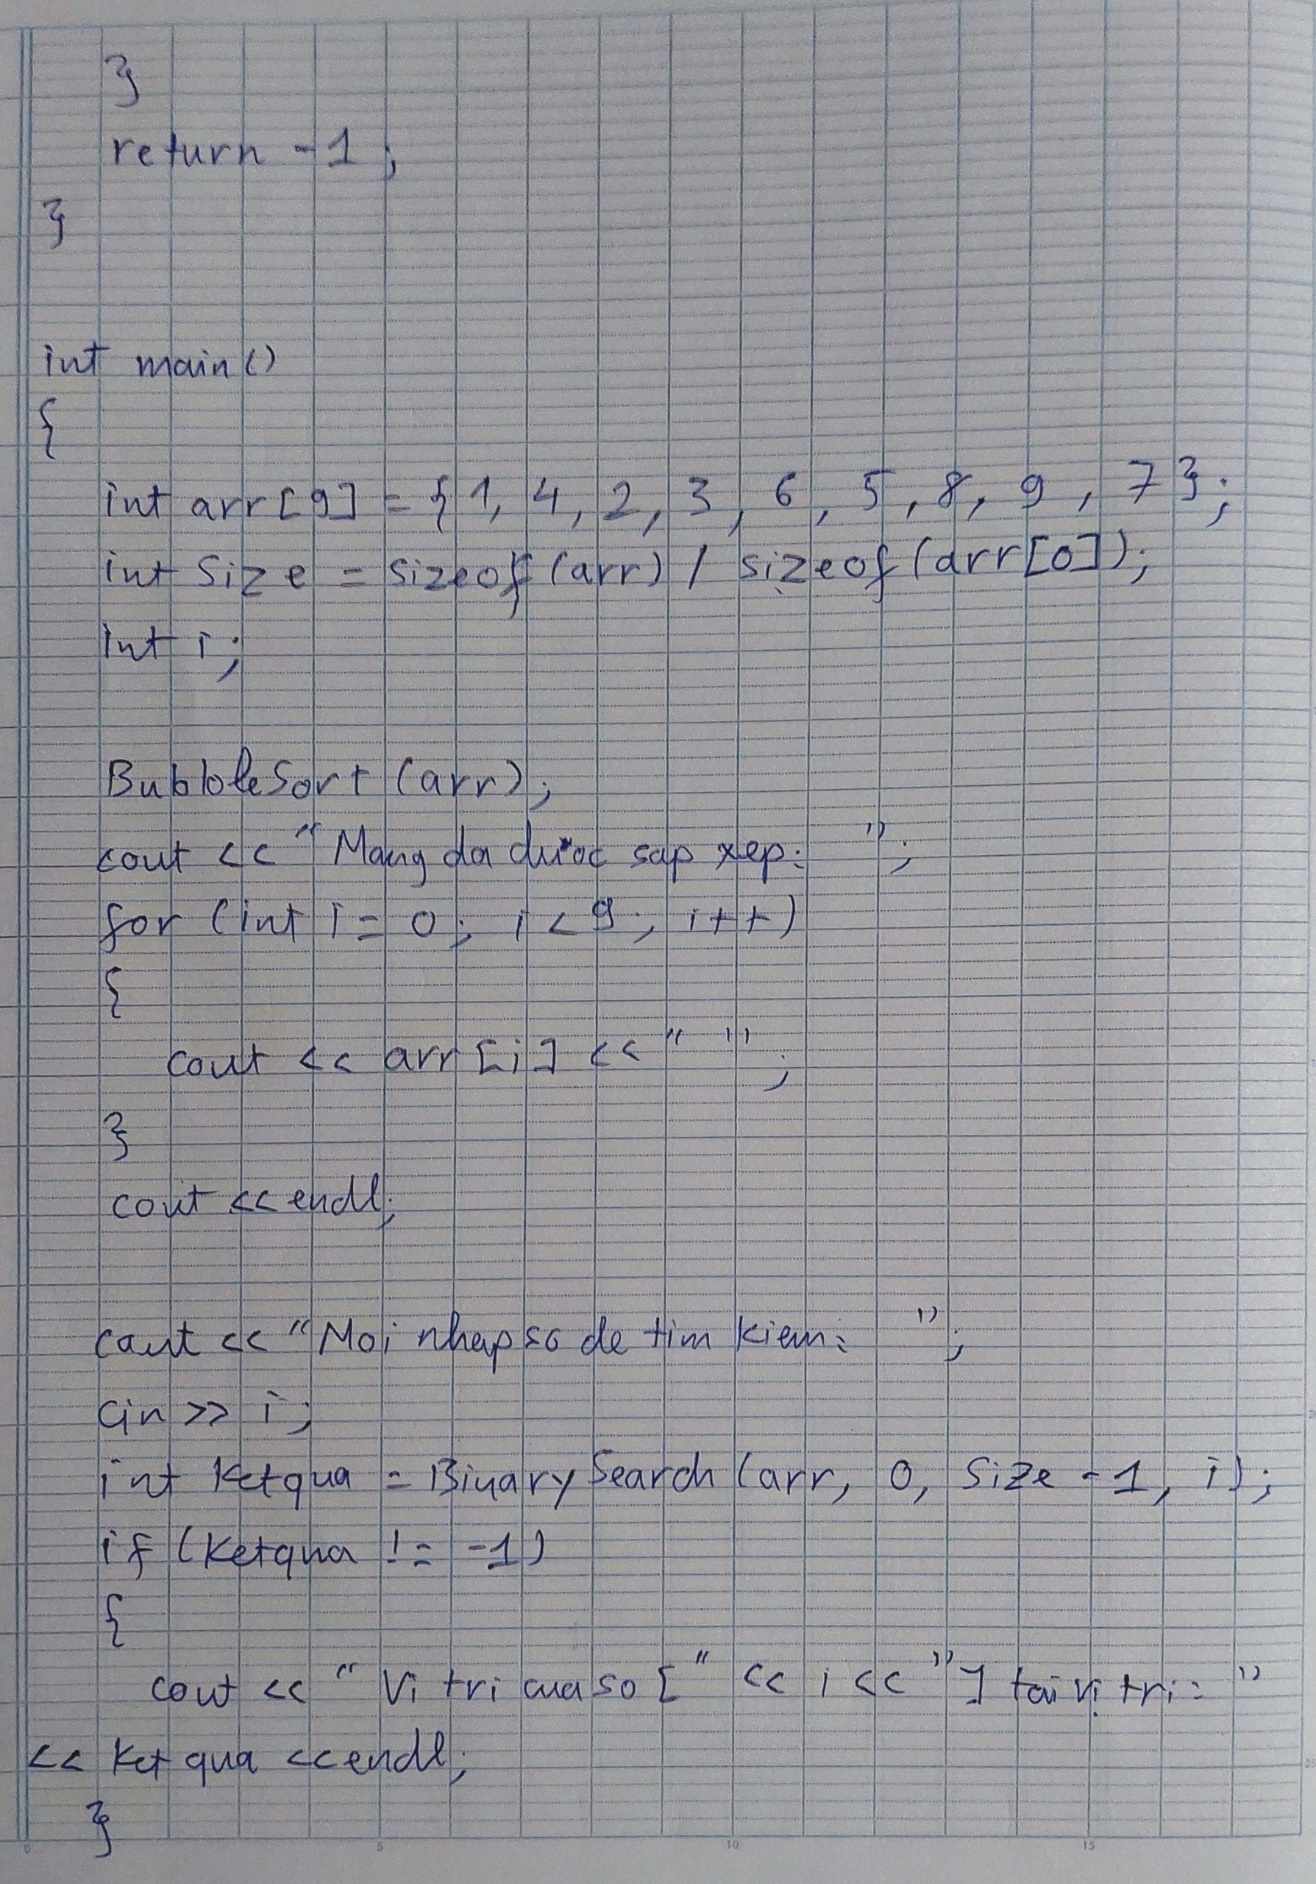 }
return -1;
}
int main()
{
int arr[9] = {1, 4, 2, 3, 6, 5, 8, 9, 7};
int Size = sizeof(arr) / sizeof(arr[0]);
int i;
BubbleSort (arr);
cout << "Mang da duoc sap xep: ";
for (int i = 0; i < 9; i++)
{
cout << arr[i] << " ";
}
cout << endl;
cout << "Moi nhap so de tim kiem: ";
cin >> i;
int Ketqua = BinarySearch (arr, 0, Size -1, i);
if (Ketqua != -1)
{
cout << "Vi tri cua so [" << i << "] tai vi tri: "
<< Ketqua << endl;
}
0 5 10 15
25